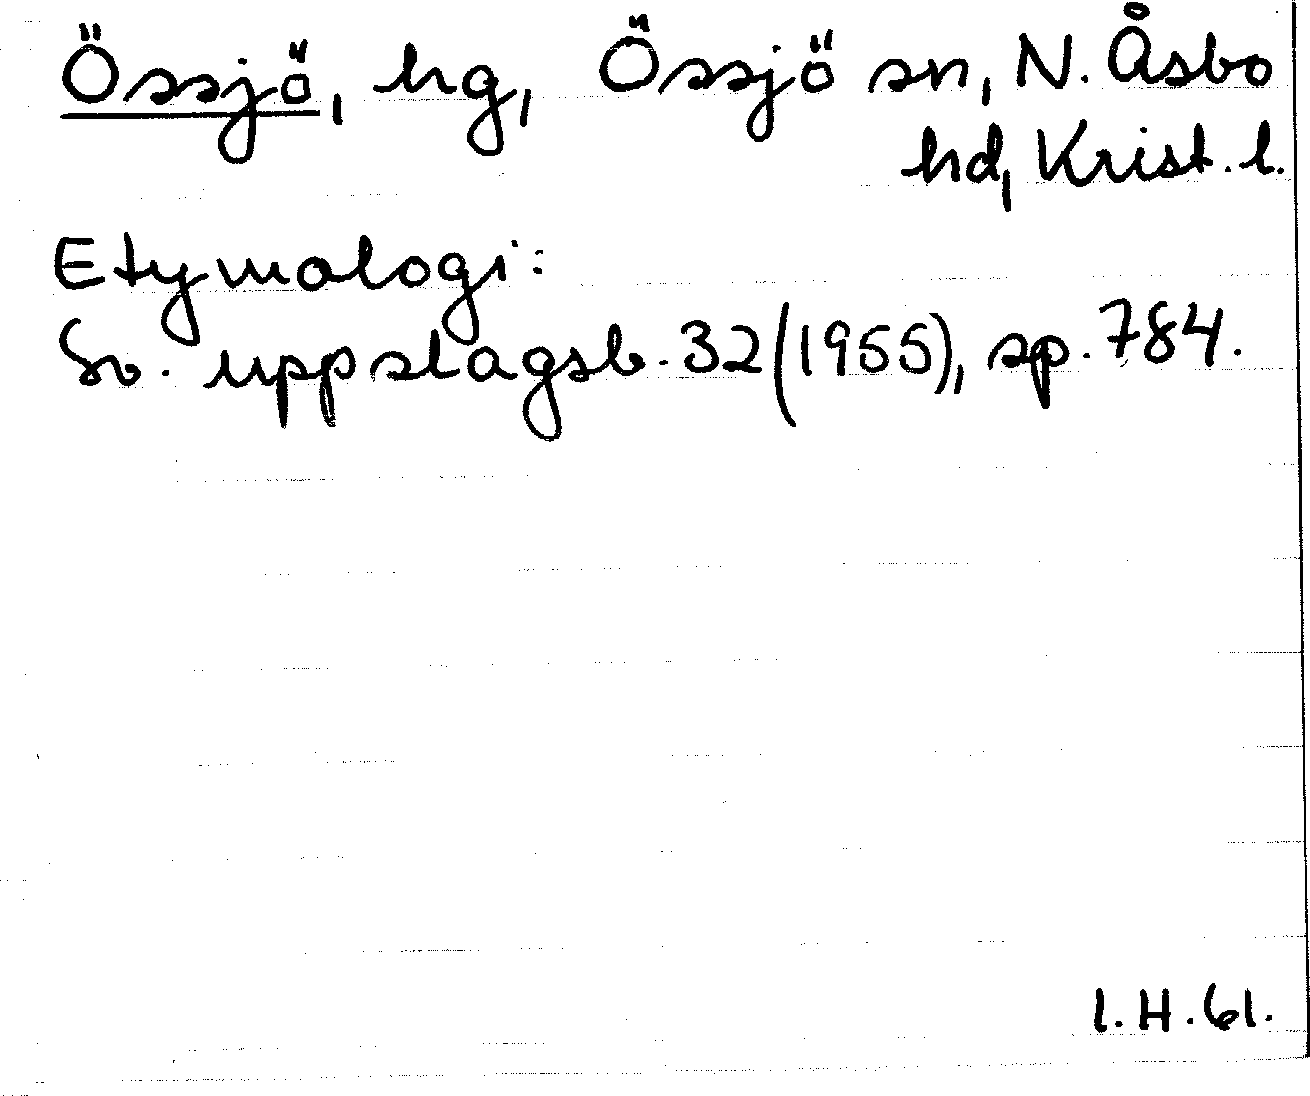 Össjö, hg, Össjö sn, N. Åsbo
hd, Krist. l.
Etymologi:
Sv. uppslagsb. 32 (1955), sp. 784.
I. H. 61.